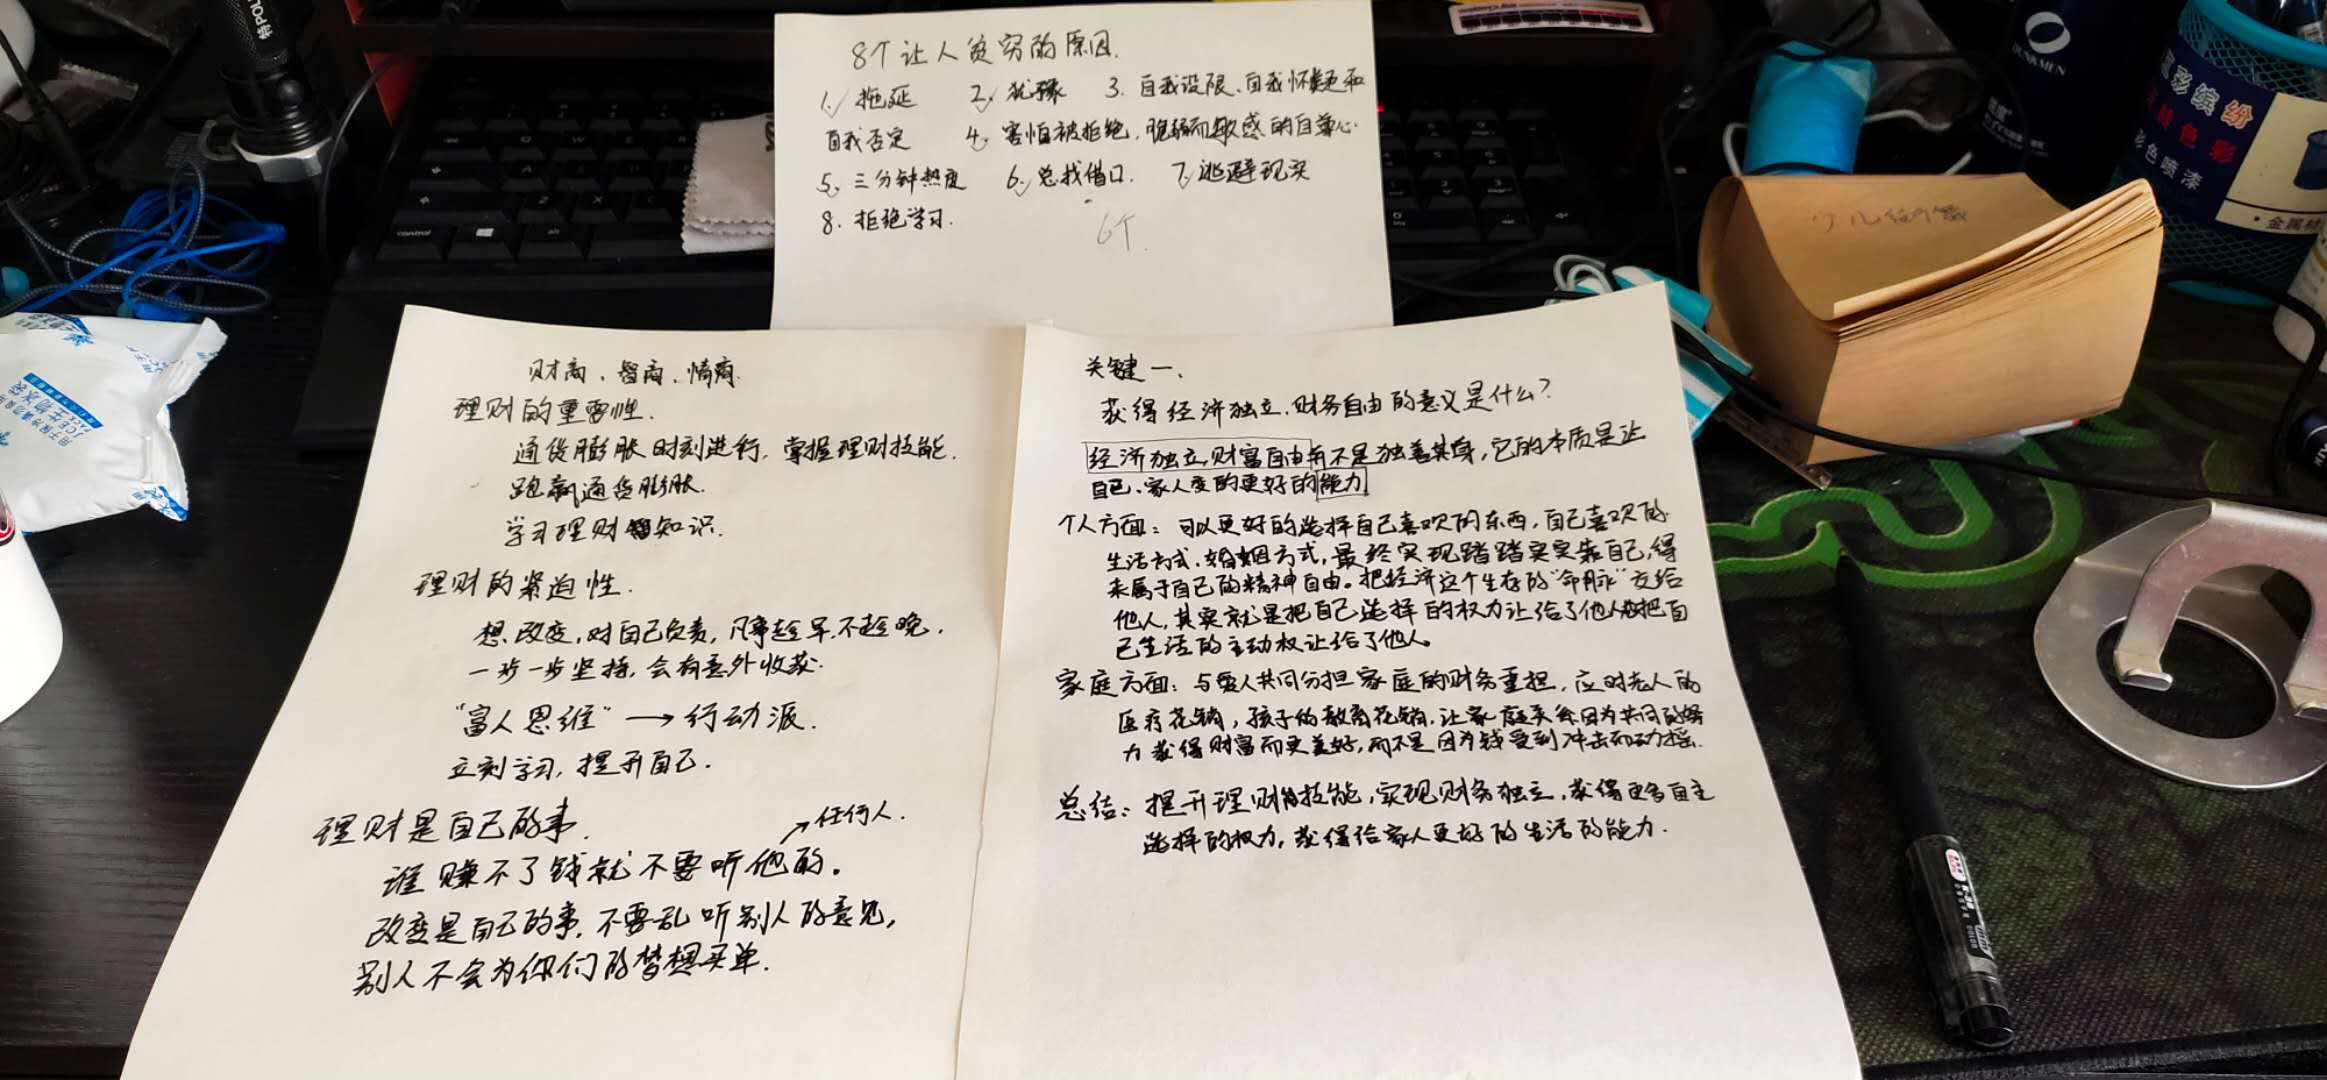 8个让人贫穷的原因.
1. 拖延 2. 犹豫 3. 自我设限、自我怀疑和
自我否定 4. 害怕被拒绝, 脆弱而敏感的自尊心
5. 三分钟热度 6. 总找借口. 7. 逃避现实
8. 拒绝学习.
6个.
财商、智商、情商.
理财的重要性.
通货膨胀时刻进行, 掌握理财技能.
跑赢通货膨胀.
学习理财知识.
理财的紧迫性.
想改变, 对自己负责, 凡事趁早, 不趁晚.
一步一步坚持, 会有意外收获.
“富人思维” → 行动派.
立刻学习, 提升自己.
理财是自己的事.
→任何人.
谁赚不了钱就不要听他的。
改变是自己的事, 不要乱听别人的意见,
别人不会为你们的梦想买单.
关键一.
获得经济独立, 财务自由的意义是什么?
经济独立, 财富自由并不是独善其身, 它的本质是让
自己、家人变的更好的能力
个人方面: 可以更好的选择自己喜欢的东西, 自己喜欢的
生活方式、婚姻方式, 最终实现踏踏实实靠自己, 得
来属于自己的精神自由。把经济这个生存的“命脉”交给
他人, 其实就是把自己选择的权力让给了他人, 把自
己生活的主动权让给了他人。
家庭方面: 与爱人共同分担家庭的财务重担, 应对老人的
医疗花销, 孩子的教育花销, 让家庭关系因为共同的努
力获得财富而更美好, 而不是因为钱受到冲击而动摇.
总结: 提升理财技能, 实现财务独立, 获得更多自主
选择的权力, 获得给家人更好的生活的能力.
少儿
特POL
control
alt
用于保鲜食品
生物冰袋
DUNKMEN
彩缤纷
色彩
彩色喷漆
金属材